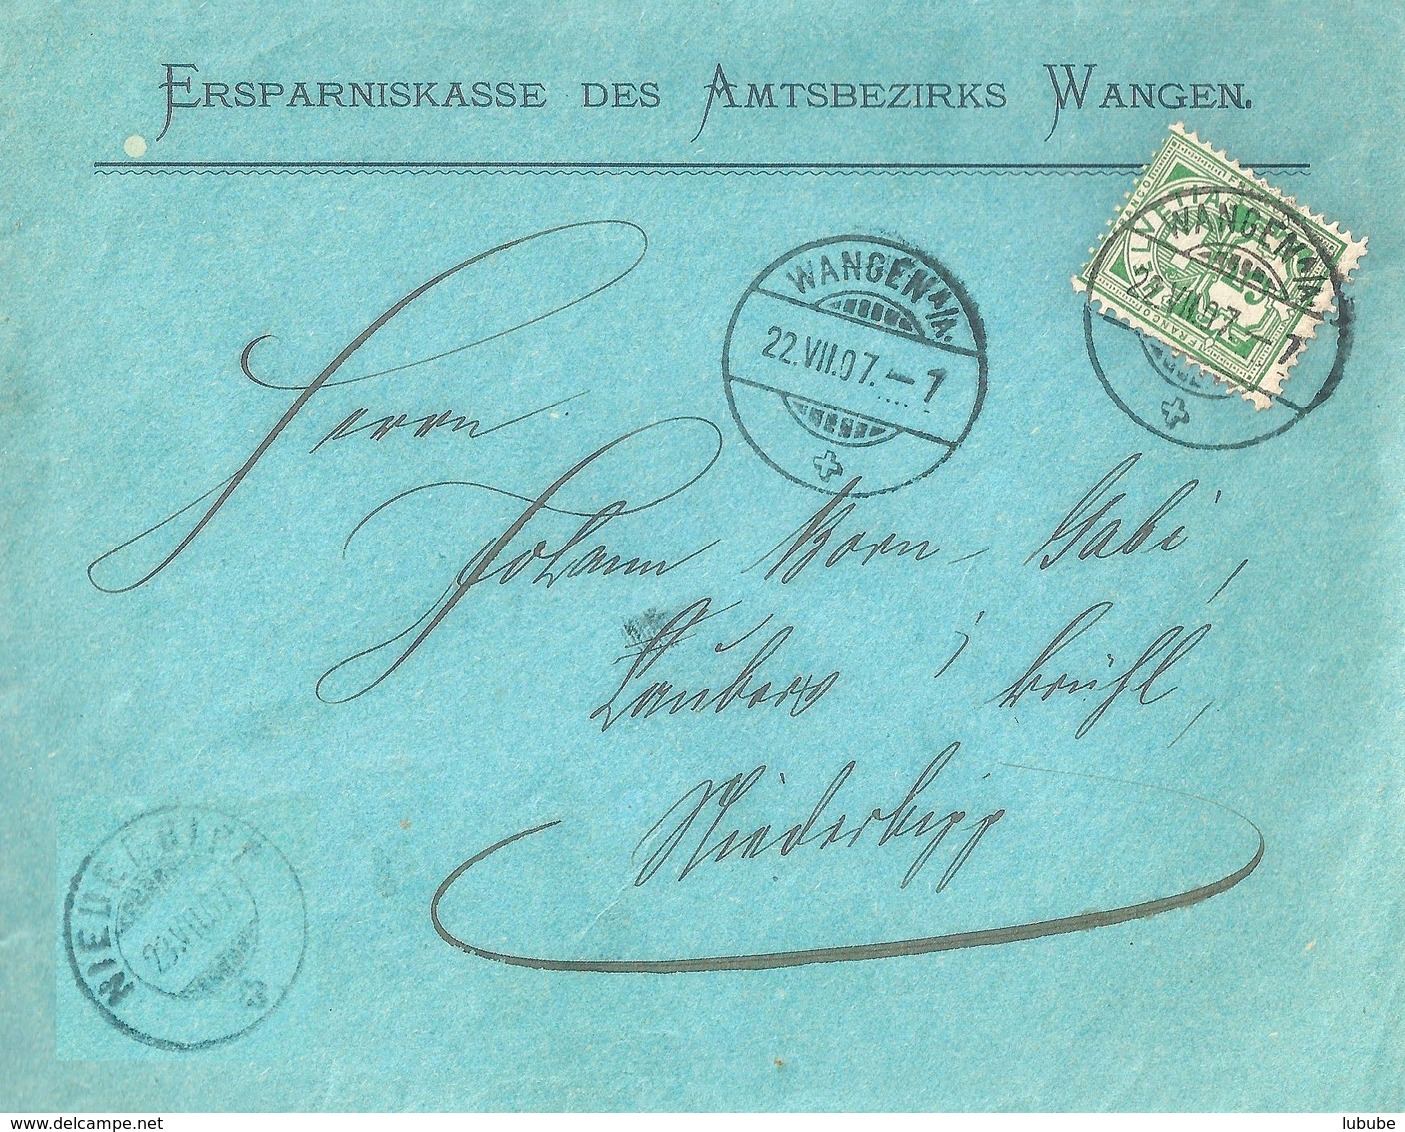 ERSPARNISKASSE DES AMTSBEZIRKS WANGEN.
WANGEN A/A.
22.VII.07.–1
WANGEN A/A.
22.VII.07.–1
HELVETIA
FRANCO
5
Herrn
Johann Born-Gabi,
i
Niederbipp
NIEDERBIPP
23.VII.07
www.delcampe.net
lubube